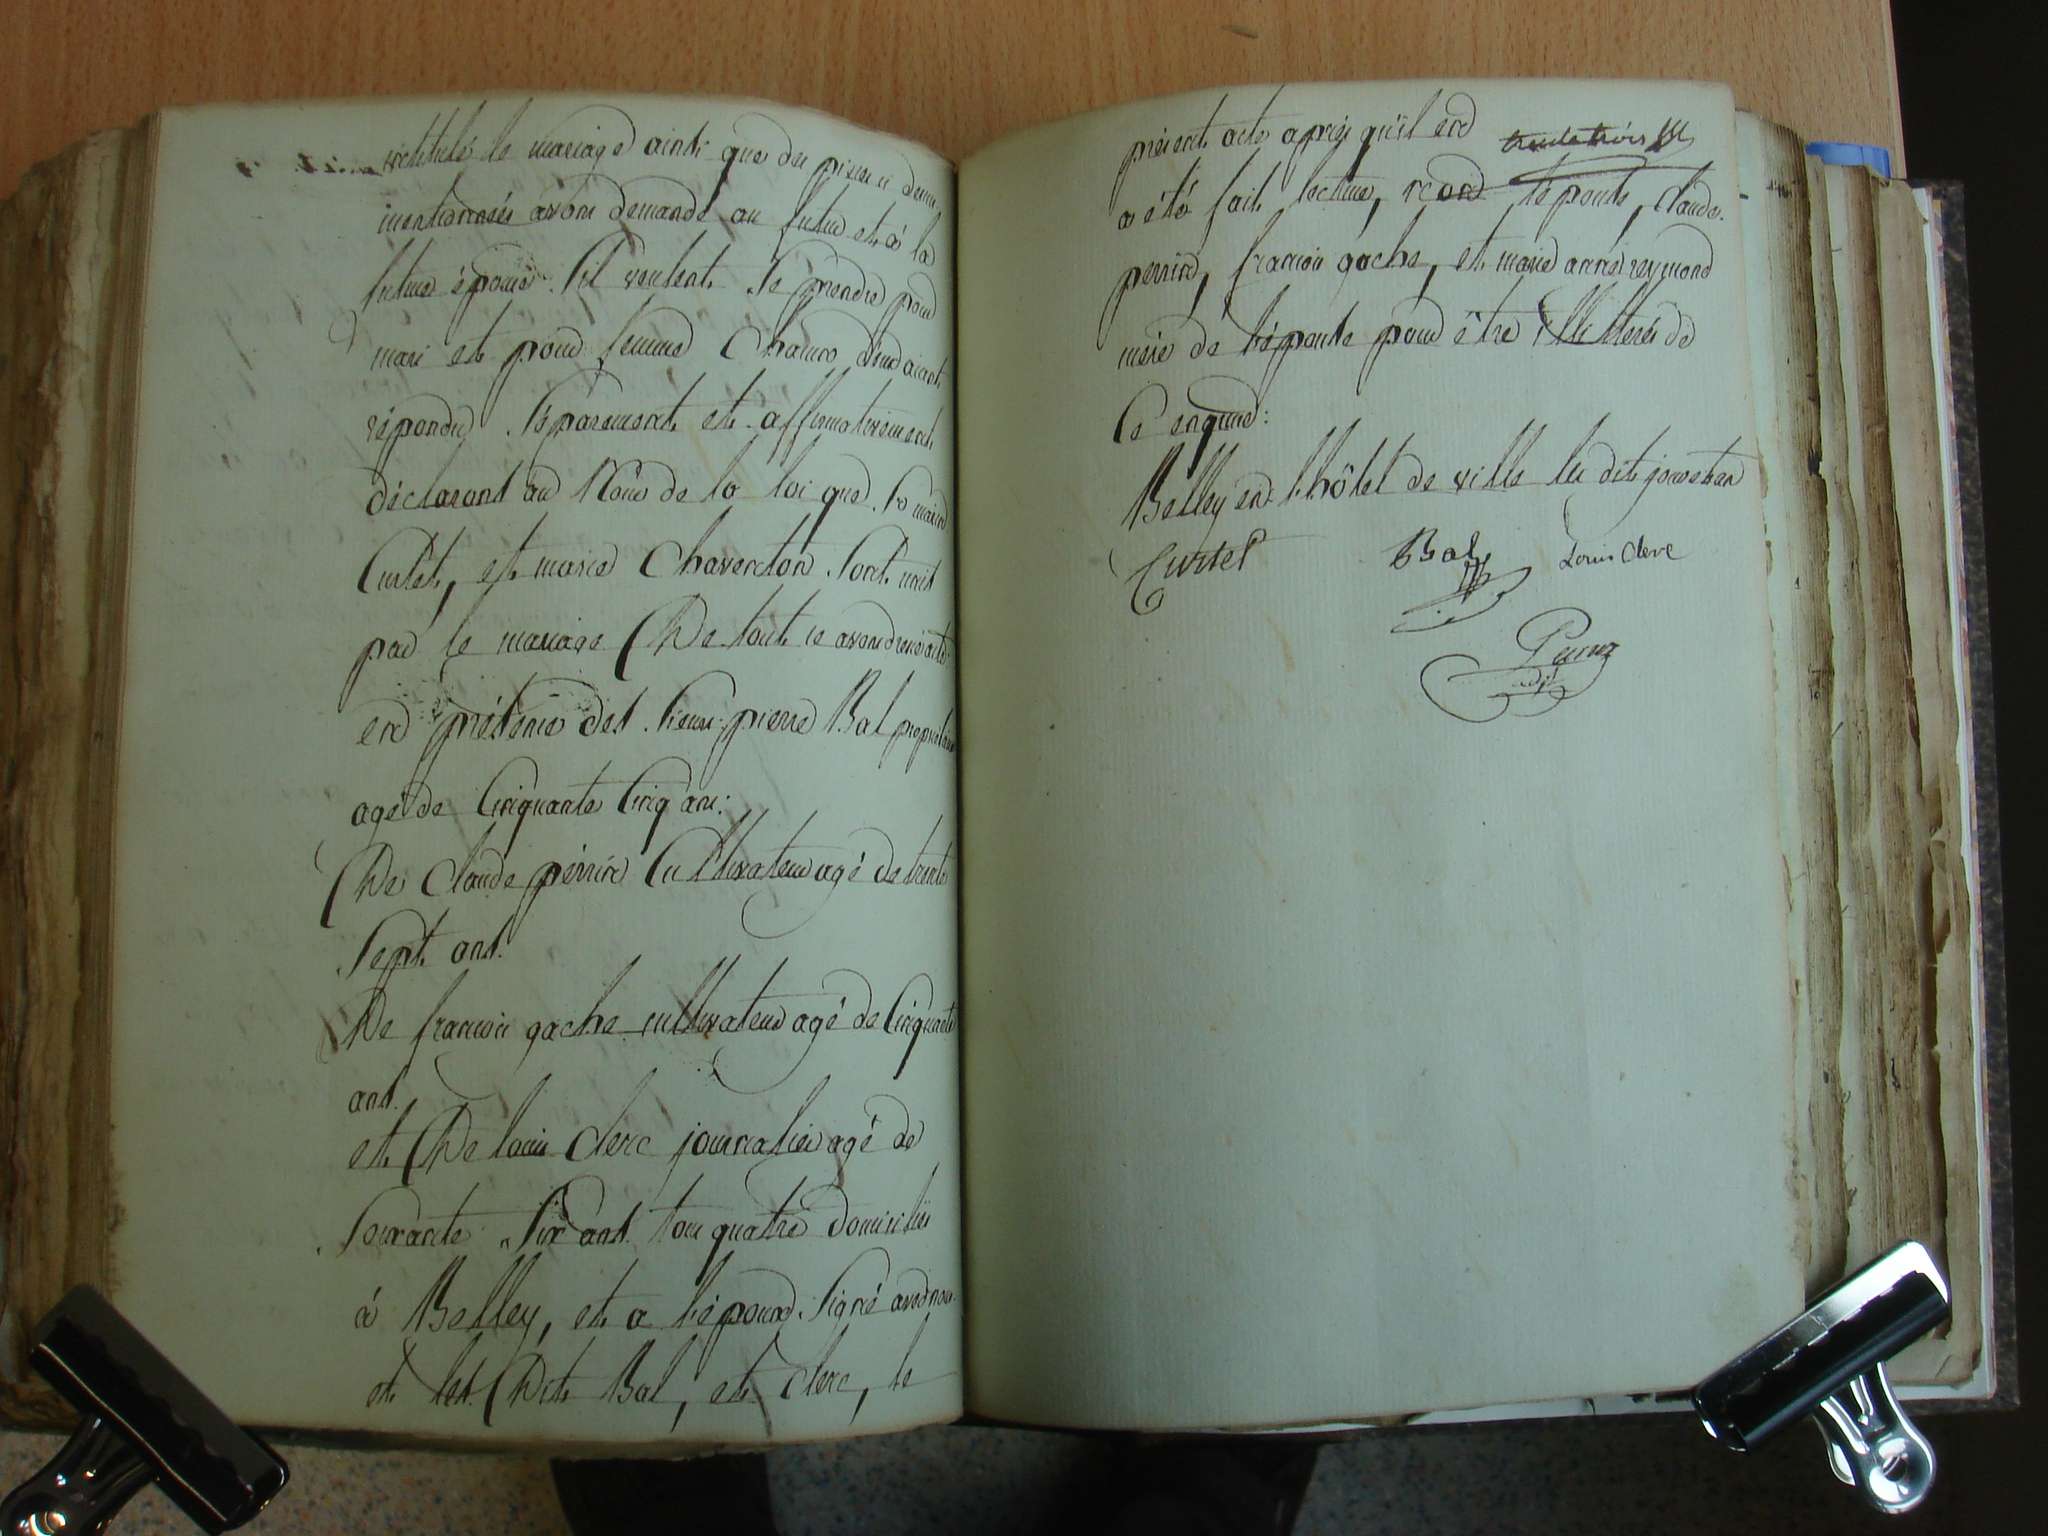 intitulé le mariage ainsi que des pieces ci dessus
mentionnées avons demandé au futur et à la
future épouse s'il veulent se prendre pour
mari et pour femme Chacun d'eux aiant
répondu séparement et affirmativement
déclarons au Nom de la loi que
Curtet, et marie Chaventon sont unis
par le mariage De tout ce avons dressé acte
en présence des sieurs pierre Bal propriétaire
agé de Cinquante Cinq ans:
De Claude perrin Cultivateur agé de trente
sept ans.
De francois gache cultivateur agé de Cinquante
ans.
et De louis Clerc journalier agé de
soixante six ans tous quatre domiciliés
à Belley, et a l'époux signé avec nous
et les Dits Bal, et Clerc, le
trente trois
présent acte après qu'il en
a été fait lecture, et non l'épouse, claude
perrin, francois gache, et marie anne reymond
mère de l'épouse pour être illitérés de
Ce enquis:
Belley en l'hôtel de ville les dits jour et an
Curtet Bal Louis Clerc
Perrin
adjt